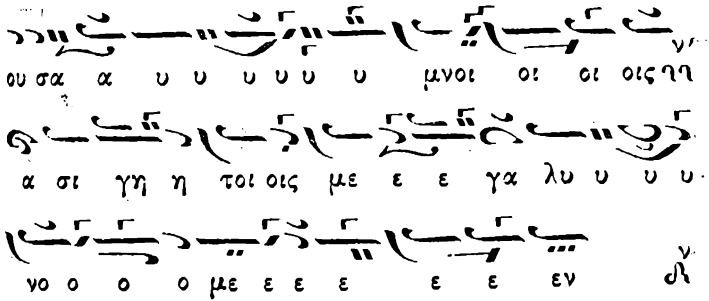 ου σα α υ υ υ υ υ υ μνοι οι οι οις
α σι γη η τοι οις με ε ε γα λυ υ υ υ
νο ο ο ο με ε ε ε ε ε εν